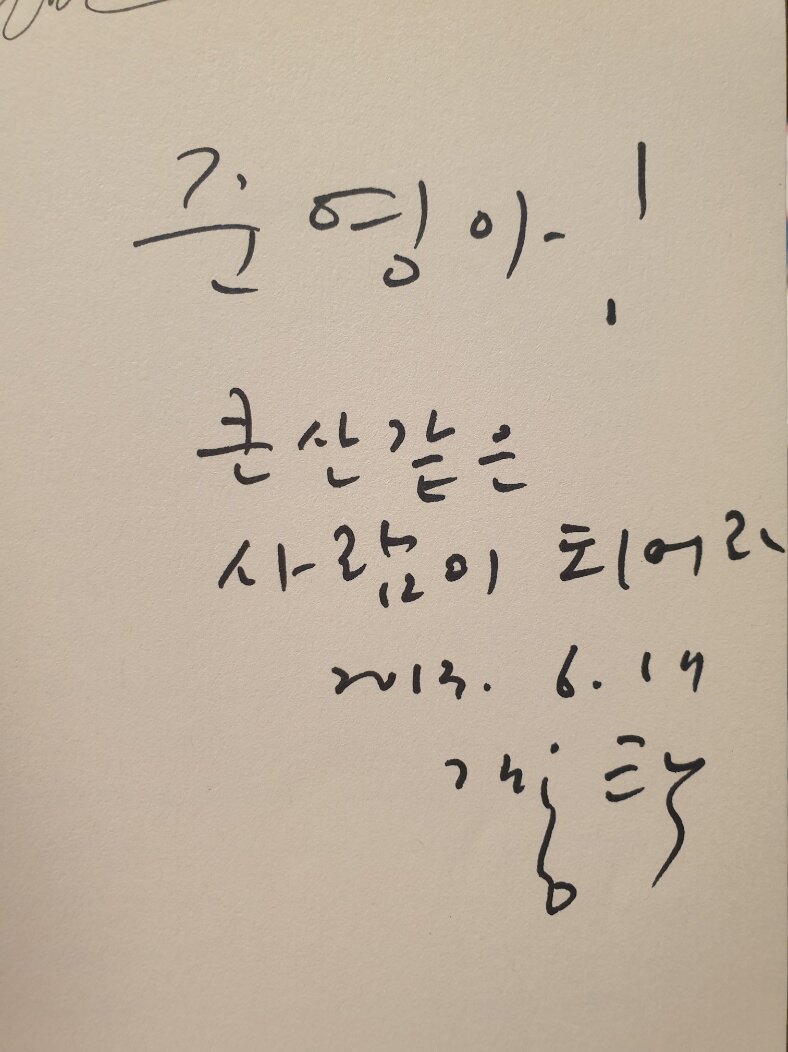 준영아!
큰산같은
사람이 되어라
2013. 6. 19